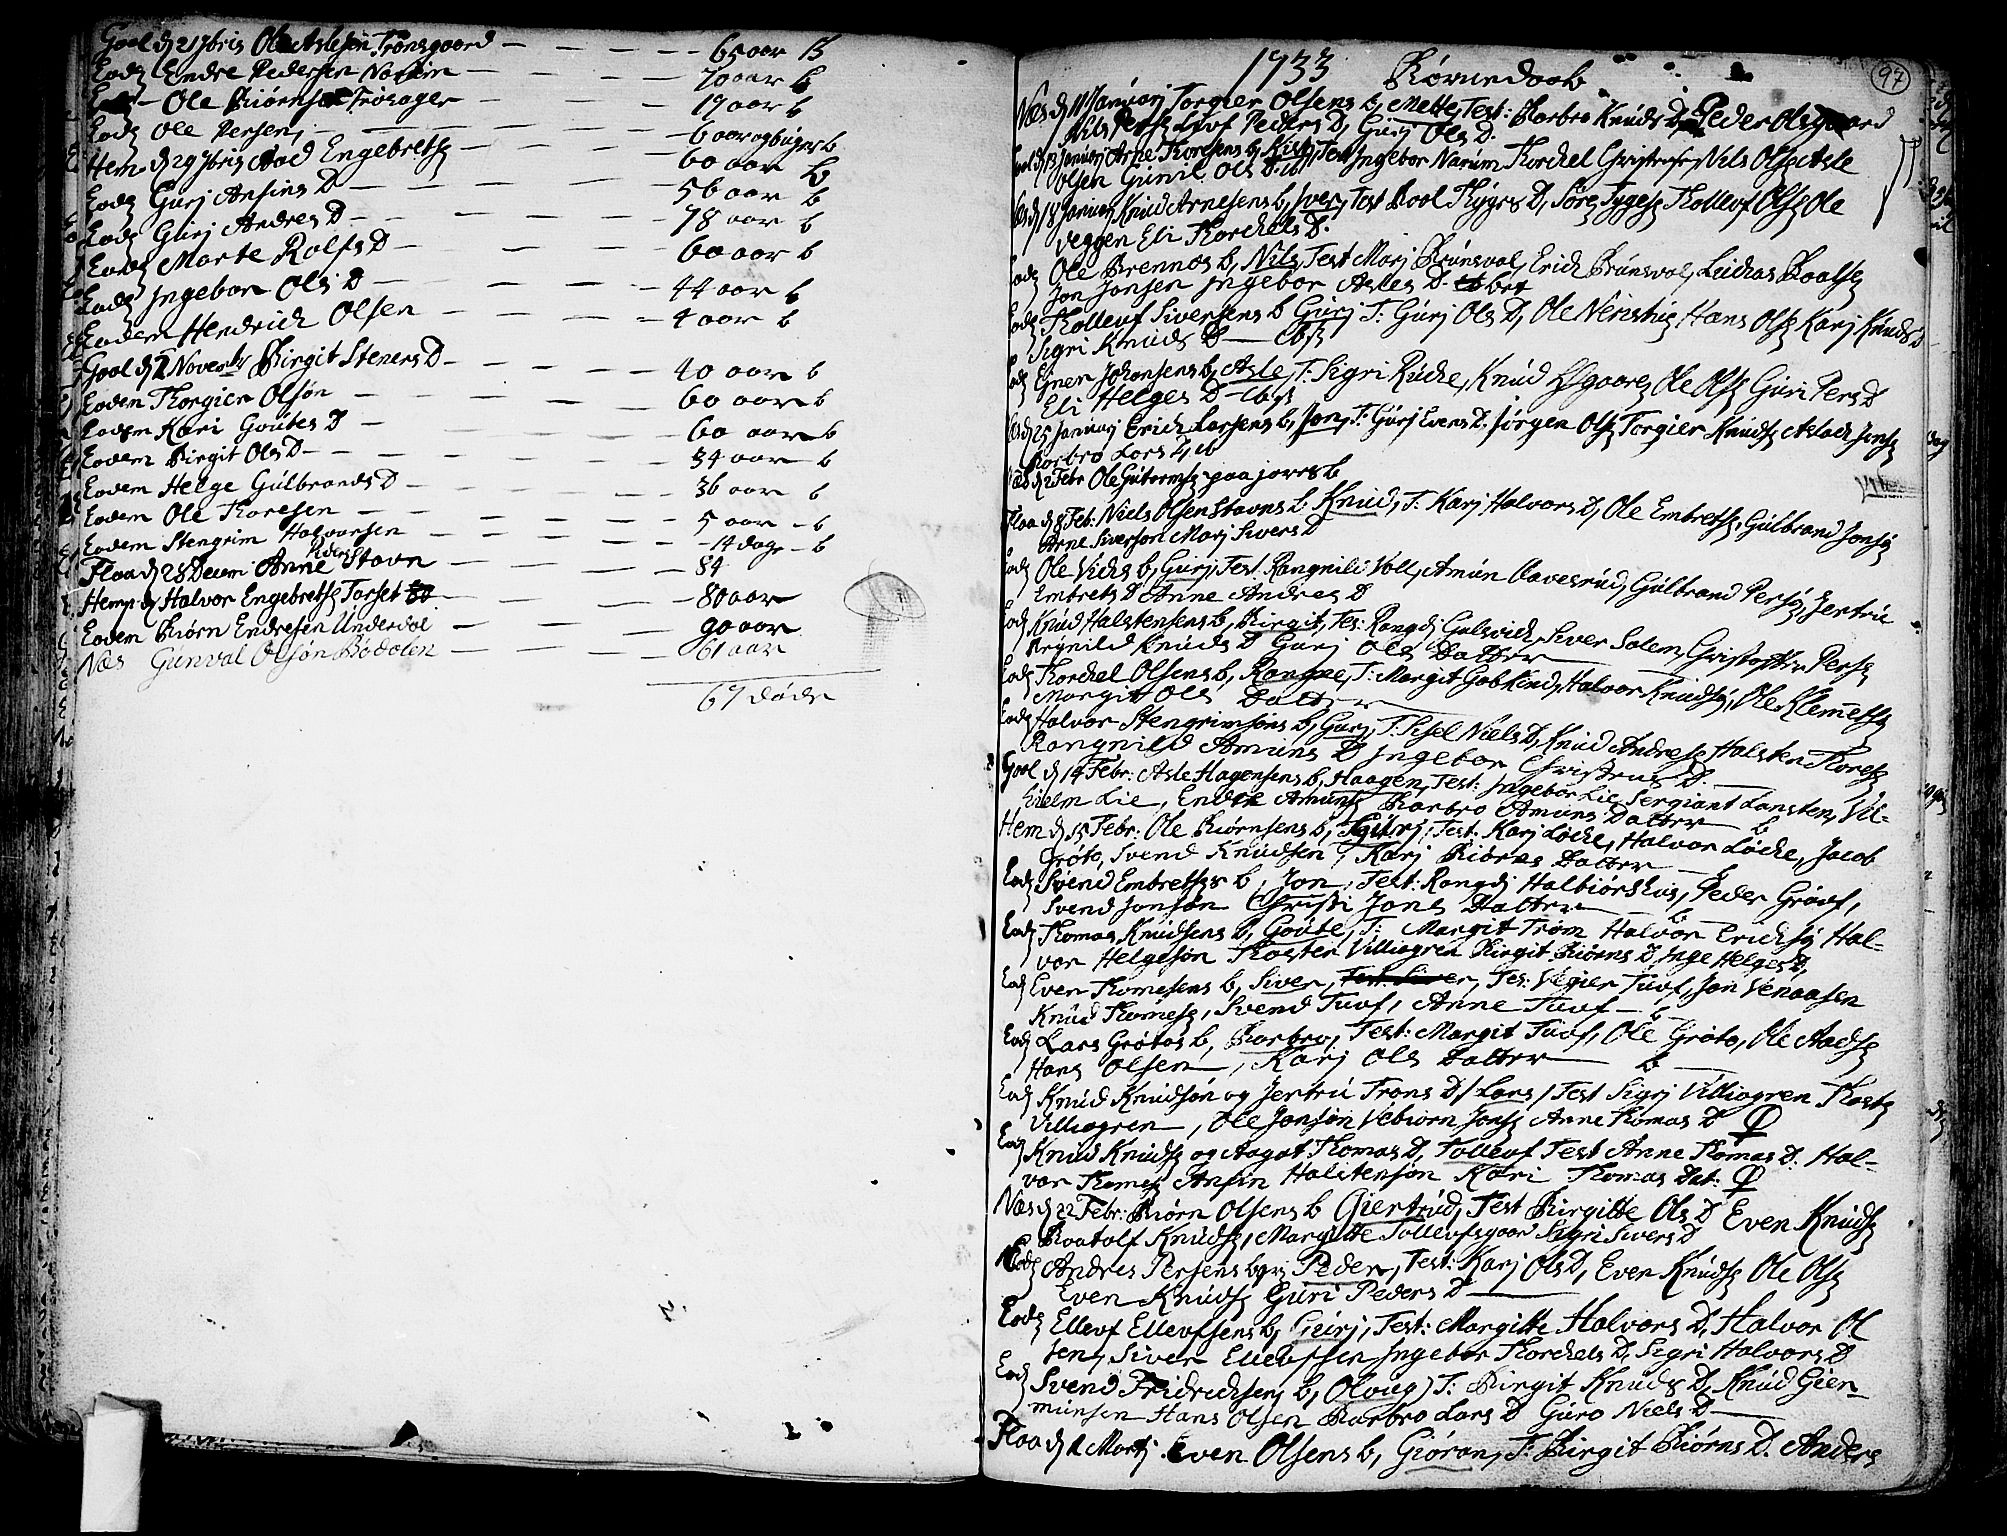 Gool d 21 7bris Ole Aslesøn Trønsgaard — — — — 65 aar B
Eod Endre Pedersen Narum — — — — 70 aar b
Eod — Ole Biørnsøn Trøsager — — — 19 aar b
Eod Ole Persen — — — — 6 aar og b
Hem d 29 7bris Aad Engebrets — — — 60 aar b
Eod Gurj Ansins D — — — 56 aar b
Eod Gurj Andres D — — — 78 aar b
Eod Marte Rolfs D — — — 60 aar b
Eod Jngebor Ols D — — — 44 aar b
Eodem Hendrich Olsen — — — 4 aar b
Gool d 1 Novemb Birgit Steners D — — — 40 aar b
Eodem Thorgier Olsøn — — — 60 aar b
Eodem Kari Goutes D — — — 60 aar b
Eodem Birgit Ols D — — — 34 aar b
Eodem Helge Gulbrands D — — — 36 aar b
Eodem Ole Thoresen — — — 5 aar b
Eodem Stengrim Halvorsen — — — 14 dage b
Flaa d 28 Decem Anne Peders Stavn — — — 84
Hemp d Halvor Engebrets Torset — — 80 aar
Eodem Biørn Endresen Underdal — — — 90 aar
Næs Gunval Olsøn Bødolen — — — 61 aar
67 døde
1733 Børnedaab 97
Næs d 11 Januarj Torgier Olsens b, Mette, Test: Barbro Knuds D, Peder Olsgaard
Nils Pers Levf Peders D, Gurj Ols D.
Gol d 13 Januarj Arne Thoresens b, Test Jngebor Narum Thorchel Nils Ols Asle
Olsen Gunil Ols D. b
Næs d 18 Januarj Knud Arnesens b, Jver, Test Boel Thyges D, Søre Tyges Thollevf Ols Ole
Veggen Eli Thorchels D.
Eod Ole Brennes b, Nils, Test Marj Brunsvol, Erich Brunsvol, Luchas Boals
Jon Jonsen Jngebor Asles D.
Eod Thollevf Siversens b Gurj T: Gurj Ols D, Ole Hans Ols Karj Knuds D
Sigri Knuds D —
Eod Ejner Johansens b, Asle, T: Sigri Ruche, Knud Ole Ols Guri Pers D
Eli Helges D
Næs d 25 Januarj Erich Larsens b, Jon, T: Gurj Evens D, Jørgen Ols Torgier Knuds Aslach Jons
Barbro Lars D, b
Næs d 2 Febr Ole Gutorms paa Jores b
Flaa d 8 Feb: Niels Olsen Stavns b Knud, T: Karj Halvors D, Ole Embrets, Gulbrand Jons
Arne Siversøn Marj Sivers D
Eod Ole Vichs b, Gurj, Test Rangnili Voll, Amun Gulbrand Pers Jertru
Embrets D Anne Andres D
Eod Knud Halstensens b, Birgit, Tes: Rangdj Gulsvich, Siver Solem, Christopher Pers
Regnild Knuds D Gurj Ols Datter
Eod Thorchel Olsens b, Rangne, T: Margit Halvor Knuds, Ole Klemets
Margit Ols Datter
Eod Halvor Stengrimsøns b, Gurj, T: Sisel Niels D, Knud Andres Halsten Thores
Rangnild Amuns D Jngebor D —
Gool d 14 Febr: Asle Hagensens b, Haagen, Test: Jngebor Lie Sergiant Lansten, Vil-
helm Lie, Endre Amuns Barbro Amuns Datter — b
Hem d 15 Febr: Ole Biørnsens b, Gurj, Test: Karj Løche, Halvor Løche, Jacob
Grøto, Svend Knudsen, Karj Biørns Datter —
Eod Svend Embrets b, Jon, Test: Rangdj Halbiørshus, Peder Grøvf,
Svend Jonsøn Christi Jons Datter — b
Eod Thomas Knudsens b, Goute, T: Margit Trøm Halvor Erichs Hal-
vor Helgesøn Thosten Villiogren Birgit Biørns D, Jnge Helges D,
Eod Even Thomesens b, Siver, Tes: Vegier Tuvf, Jon Venaasen
Knud Thomes, Svend Tuvf, Anne Tuvf — b
Eod Lars Grøtos b, Barbro, Test: Margit Tuvf, Ole Grøto, Ole Aads
Hans Olsen, Karj Ols Datter — b
Eod Knud Knudsøn og Jertru Trons D / Lars / Test Sigrj Villiogren Thost
Villiogren, Ole Jonsøn Vebiørn Jons Anne Thomas D
Eod Knud Knuds og Aagot Thomas D, Tollevf Test Anne Thomas D. Hal-
vor Thomes Ansin Halstensøn Kari Thomas Dat:
Næs d 22 Febr: Biørn Olsens b Giertrud, Test Birgitte Ols D Even Knuds
Boatolf Knuds, Margitte Tollevfsgaar Sigri Sivers D
Eod Andres Persens b Peder, Test: Karj Ols D, Even Knuds Ole Ols
Even Knuds Guri Peders D —
Eod Ellevf Ellevfsens b, Gurj, Test: Margitte Halvors D, Halvor Ol
sen, Siver Ellevfsen Jngebor Thorchels D, Sigri Halvors D
Eod Svend Fridrichsens b, Olvug, T: Birgit Knuds D, Knud Gier-
munsen Hans Olsen Barbro Lars D Guro Niels D —
Flaa d 1 Martj Even Olsens b, Giøran, T: Birgit Biørns D. Anders